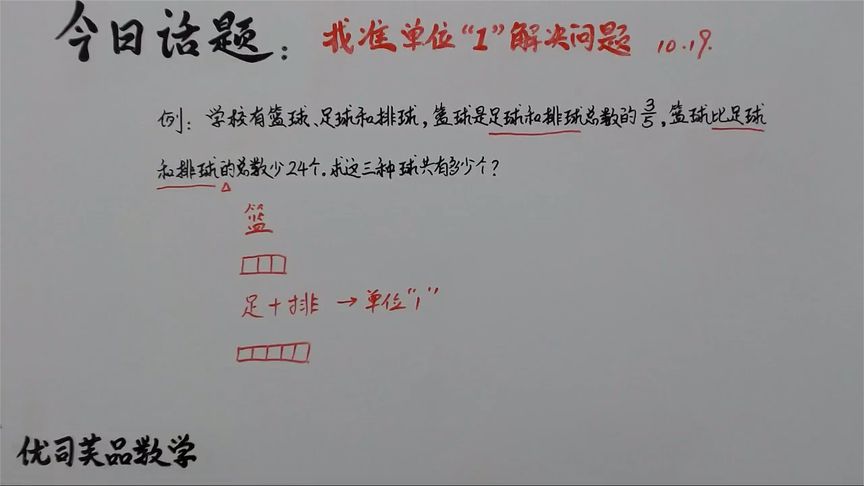 今日话题：找准单位“1”解决问题 10.19.
例：学校有篮球、足球和排球，篮球是足球和排球总数的3/5，篮球比足球
和排球的总数少24个。求这三种球共有多少个？
篮
足+排 → 单位“1”
优司芙品数学